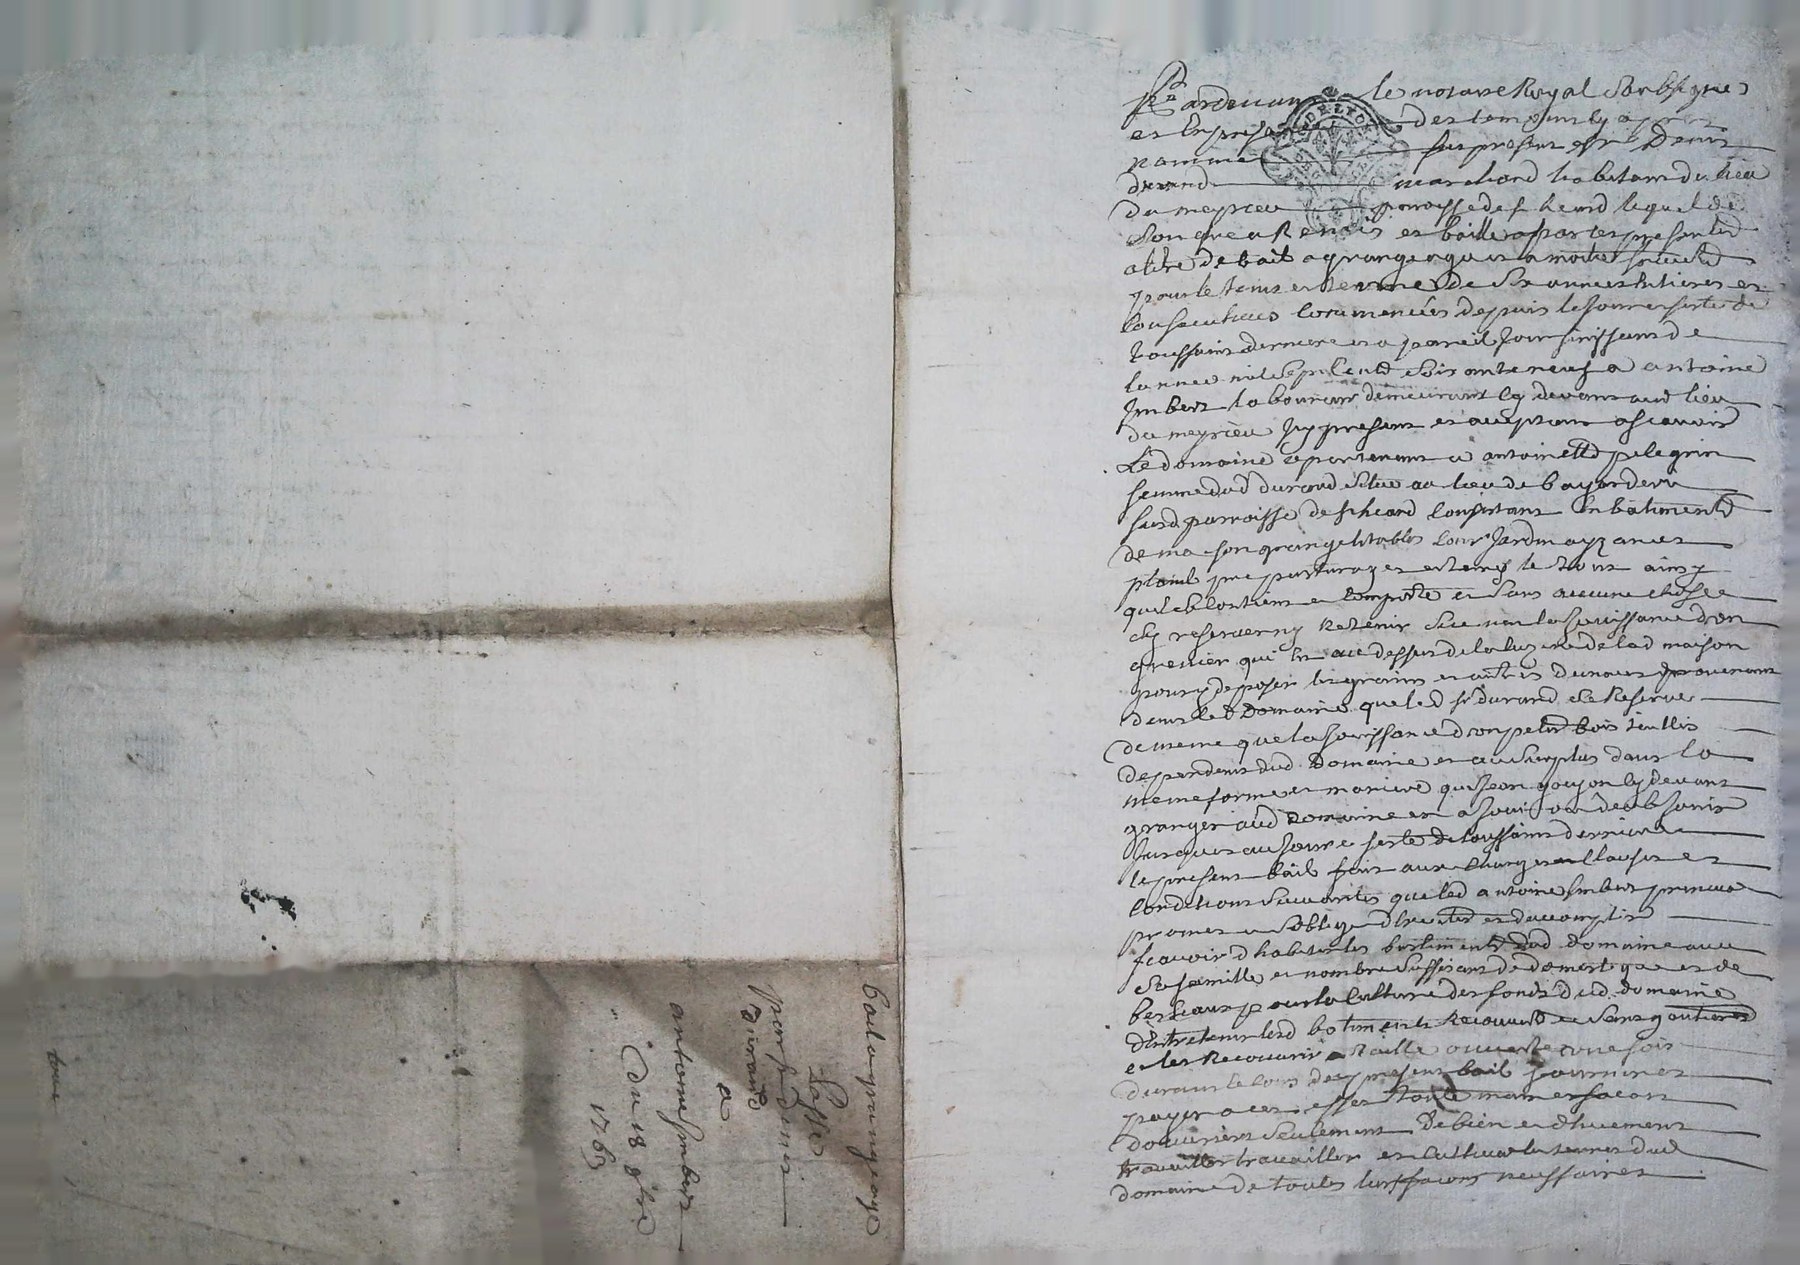 Par devant le notaire Royal Soubsigné
et En presence des temoins Cy apres
nommé fut present sr Denis
durand marchand habitant du lieu
du meyrieu parroisse de st heand lequel de
Son gre a Remis et baillé par ces presentes
a titre de bail a grangeage et a moitié fruits
pour le tems et terme de Six années Entieres et
Consecutives Commencées depuis le jour et feste de
toussaint derniere et a pareil Jour finissant de
lannee mil Sept Cents Soixante neuf a antoine
Imbert laboureur demeurant Cy devant aud lieu
du meyrieu Icy present et acceptant a scavoir
Le domaine apartenant a antoinette pelegrin
femme dud durand Situé au lieu de
susd parroisse de st heand Consistant En bâtiments
de maison grange Etables Cour Jardin ayzances
pré pasturages et terres le tout ainsy
quil se Contient et Comporte et Sans aucune chose
Cy reserver ny Retenir Si ce n'est la Jouissance d'un
grenier qui Est au dessus de la de lad maison
pour y deposer les grains et autres denrees provenant
dans led Domaine que led sr durand Se Reserve
de meme que la Jouissance d'un petit bois taillis
dependant dud Domaine et au Surplus dans la
meme forme et maniere que Jean goujon Cy devant
granger aud Domaine en a joui ou deub jouir
Jusques au Jour et feste de toussaint derniere
le present bail fait aux charges Clauses et
Conditions Suivantes que led antoine Imbert preneur
promet et S'oblige d'Executer et d'accomplir
scavoir d'habiter les bastiments dud domaine avec
Sa famille et nombre Suffisant de domestiques et de
bestiaux pour la Culture des fonds dud domaine
d'Entretenir lesd batiments Recouverts et Sans goutieres
et les Recouvrir a taille ouverte une fois
durant le Cours du present bail fournir et
payer a cet effet toute main et facon
d'ouvriers Seulement De bien et dhuement
travailler et Cultiver les terres dud
domaine de toutes Leurs façons necessaires
bail a grangeage
Passé
par sr denis
Durand
a
antoine Imbert
du 18 9bre
1763